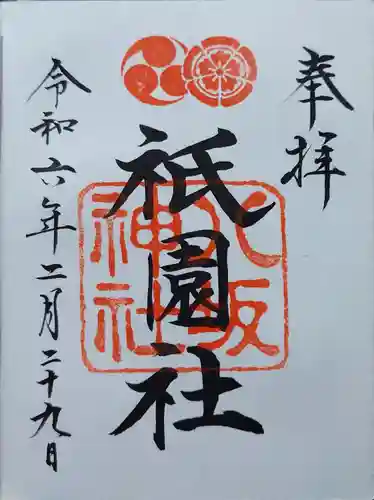 奉拝
祇園社
八坂神社
令和六年二月二十九日